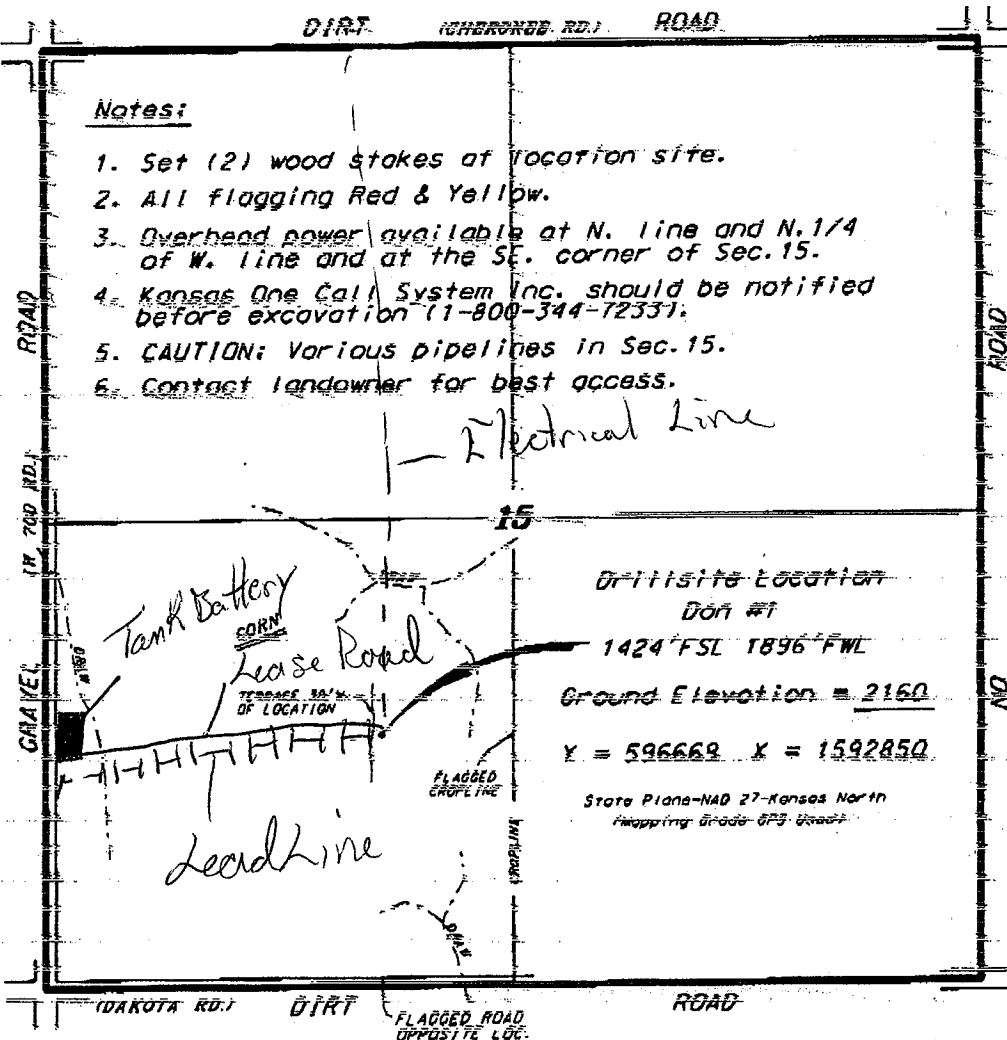 DIRT (CHEROKEE RD.) ROAD
Notes:
1. Set (2) wood stakes at location site.
2. All flagging Red & Yellow.
3. Overhead power available at N. line and N.1/4
of W. line and at the SE. corner of Sec.15.
4. Kansas One Call System Inc. should be notified
before excavation (1-800-344-7233).
5. CAUTION: Various pipelines in Sec.15.
6. Contact landowner for best access.
Electrical Line
ROAD
(W 700 RD.)
GRAVEL
ROAD
NO
15
Tank Battery
CORN
Lease Road
TERRACE 30'W.
OF LOCATION
DRAW
Drillsite Location
Don #1
1424'FSL 1896'FWL
Ground Elevation = 2160
Y = 596669 X = 1592850
State Plane-NAD 27-Kansas North
(Mapping Grade GPS Used)
FLAGGED
CROPLINE
CROPLINE
Lead Line
DRAW
(DAKOTA RD.) DIRT ROAD
FLAGGED ROAD
OPPOSITE LOC.